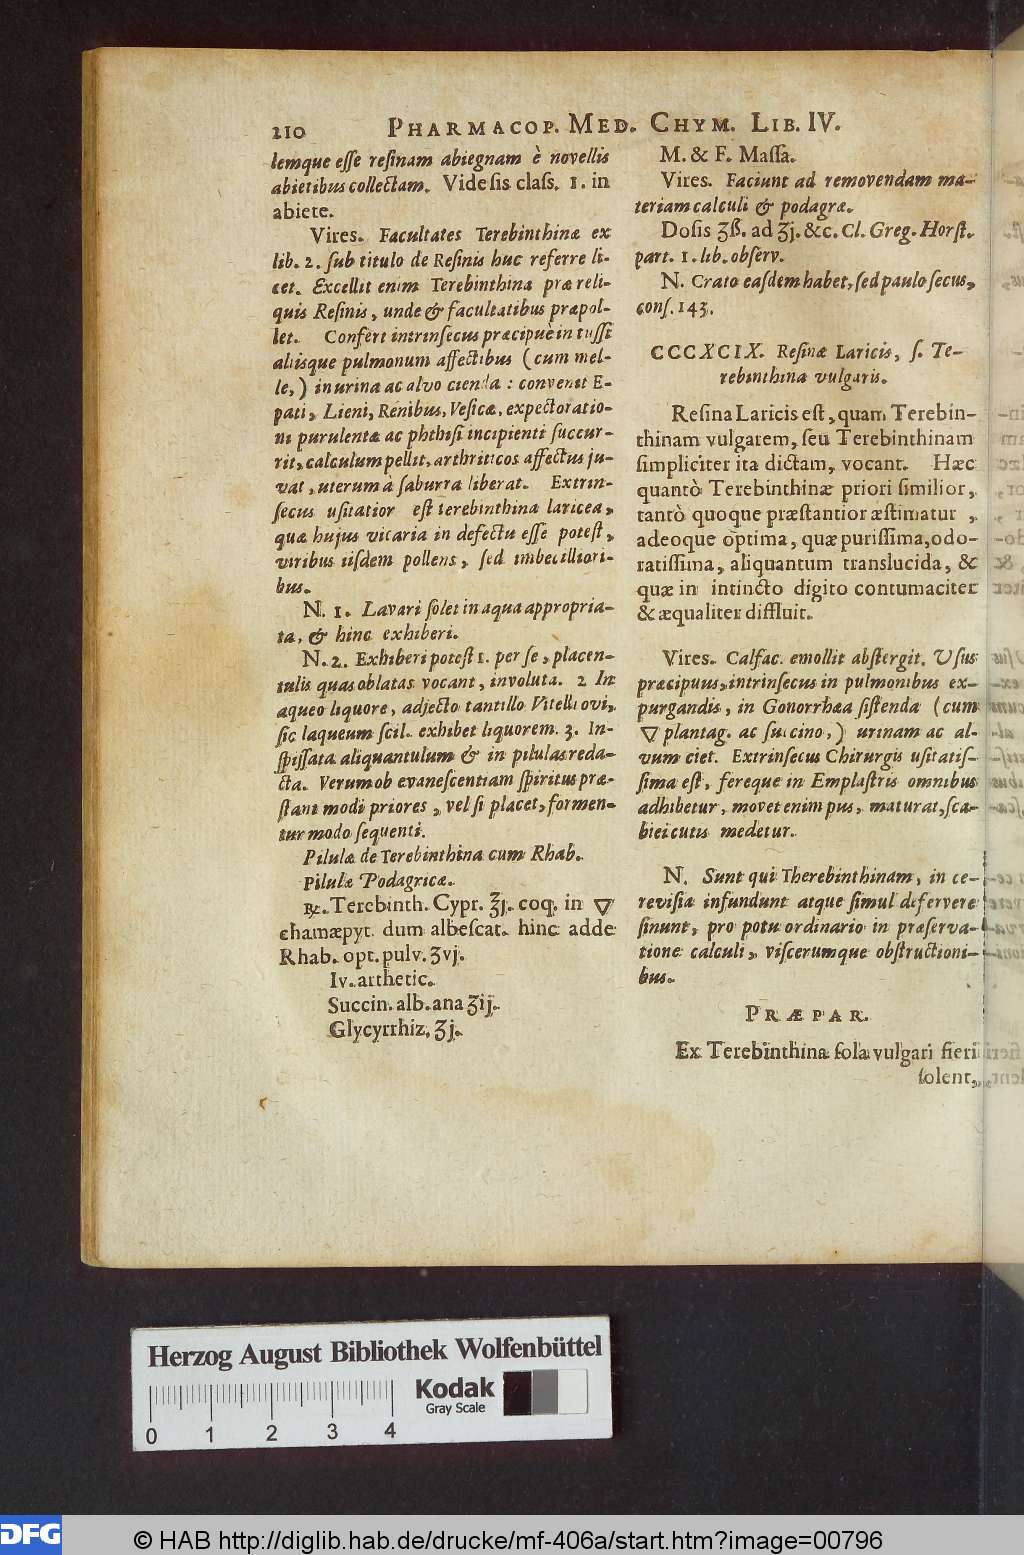 210 PHARMACOP. MED. CHYM. LIB. IV.
lemque eſſe reſinam abiegnam è novellis
abietibus collectam. Vide ſis claſs. 1. in
abiete.
Vires. Facultates Terebinthinæ ex
lib. 2. ſub titulo de Reſinis huc referre li-
cet. Excellit enim Terebinthina præ reli-
quis Reſinis, unde & facultatibus præpol-
let. Confert intrinſecus præcipuè in tuſſi
aliisque pulmonum affectibus (cum mel-
le,) in urina ac alvo cienda : convenit E-
pati, Lieni, Renibus, Veſicæ, expectoratio-
ni purulentæ ac phthiſi incipienti ſuccur-
rit, calculum pellit, arthriticos affectus ju-
vat, uterum à ſaburra liberat. Extrin-
ſecus uſitatior eſt terebinthina laricea,
quæ hujus vicaria in defectu eſſe poteſt,
viribus iiſdem pollens, ſed imbecilliori-
bus.
N. 1. Lavari ſolet in aqua appropria-
ta, & hinc exhiberi.
N. 2. Exhiberi poteſt 1. per ſe, placen-
tulis quas oblatas vocant, involuta. 2 In
aqueo liquore, adjecto tantillo Vitelli ovi,
ſic laqueum ſcil. exhibet liquorem. 3. In-
ſpiſſata aliquantulum & in pilulas reda-
cta. Verum ob evaneſcentiam ſpiritus præ-
ſtant modi priores, vel ſi placet, formen-
tur modo ſequenti.
Pilulæ de Terebinthina cum Rhab.
Pilulæ Podagricæ.
℞. Terebinth. Cypr. ℥j. coq. in 🜄
chamæpyt. dum albeſcat. hinc adde
Rhab. opt. pulv. ʒvj.
Iv. arthetic.
Succin. alb. ana ʒij.
Glycyrrhiz. ʒj.
M. & F. Maſſa.
Vires. Faciunt ad removendam ma-
teriam calculi & podagræ.
Doſis ʒß. ad ʒj. &c. Cl. Greg. Horſt.
part. 1. lib. obſerv.
N. Crato eaſdem habet, ſed paulo ſecus,
conſ. 143.
CCCXCIX. Reſinæ Laricis, ſ. Te-
rebinthina vulgaris.
Reſina Laricis eſt, quam Terebin-
thinam vulgarem, ſeu Terebinthinam
ſimpliciter ita dictam, vocant. Hæc
quantò Terebinthinæ priori ſimilior,
tantò quoque præſtantior æſtimatur ,
adeoque optima, quæ puriſſima, odo-
ratiſſima, aliquantum translucida, &
quæ in intincto digito contumaciter
& æqualiter diffluit.
Vires. Calfac. emollit abſtergit. Uſus
præcipuus, intrinſecus in pulmonibus ex-
purgandis, in Gonorrhæa ſiſtenda (cum
🜄 plantag. ac ſuccino,) urinam ac al-
vum ciet. Extrinſecus Chirurgis uſitatiſ-
ſima eſt, fereque in Emplaſtris omnibus
adhibetur, movet enim pus, maturat, ſca-
biei cutis medetur.
N. Sunt qui Therebinthinam, in ce-
reviſia infundunt atque ſimul defervere
ſinunt, pro potu ordinario in præſerva-
tione calculi, viſcerumque obſtructioni-
bus.
PRÆPAR.
Ex Terebinthina ſola vulgari fieri
ſolent,
Herzog August Bibliothek Wolfenbüttel
Kodak
Gray Scale
0 1 2 3 4
DFG © HAB http://diglib.hab.de/drucke/mf-406a/start.htm?image=00796